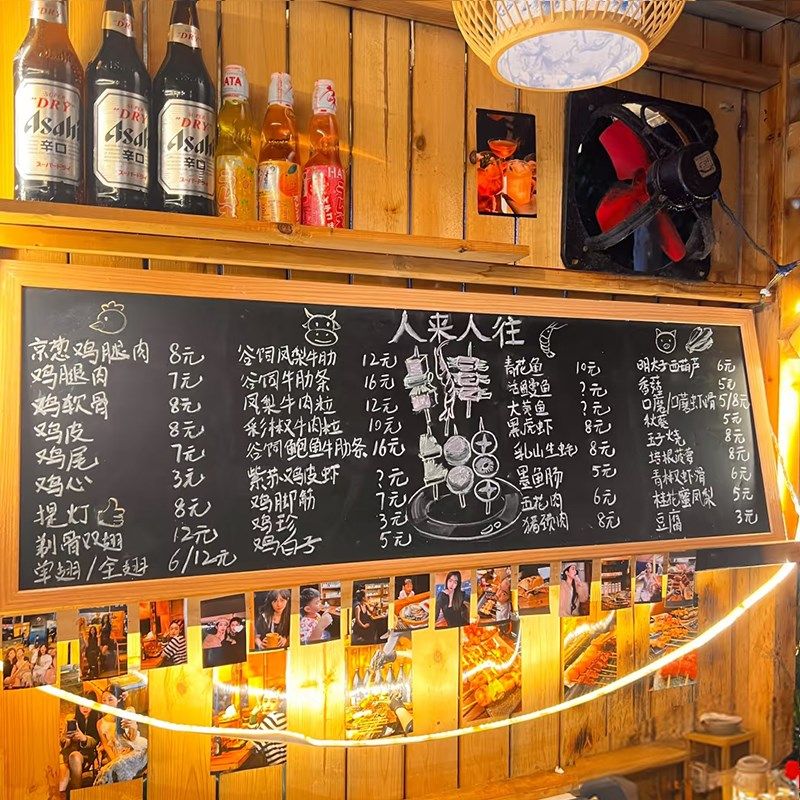 SUPER "DRY" Asahi 辛口 スーパードライ
SUPER "DRY" Asahi 辛口 スーパードライ
"DRY" Asahi 辛口 スーパードライ
人来人往
京葱鸡腿肉 8元
鸡腿肉 7元
鸡软骨 8元
鸡皮 8元
鸡尾 7元
鸡心 3元
提灯 8元
剔骨双翅 12元
单翅/全翅 6/12元
谷饲凤梨牛肋 12元
谷饲牛肋条 16元
凤梨牛肉粒 12元
彩椒牛肉粒 10元
谷饲鲍鱼牛肋条 16元
紫苏鸡皮虾 ?元
鸡脚筋 7元
鸡珍 3元
鸡白子 5元
青花鱼 10元
活鳗鱼 ?元
大黄鱼 ?元
黑虎虾 8元
乳山生蚝 8元
墨鱼肠 5元
五花肉 6元
猪颈肉 8元
明太子西葫芦 6元
香菇 5元
口蘑/口蘑虾滑 5/8元
秋葵 5元
玉子烧 5元
培根菠菜 8元
青椒虾滑 6元
桂花蜜凤梨 5元
豆腐 3元